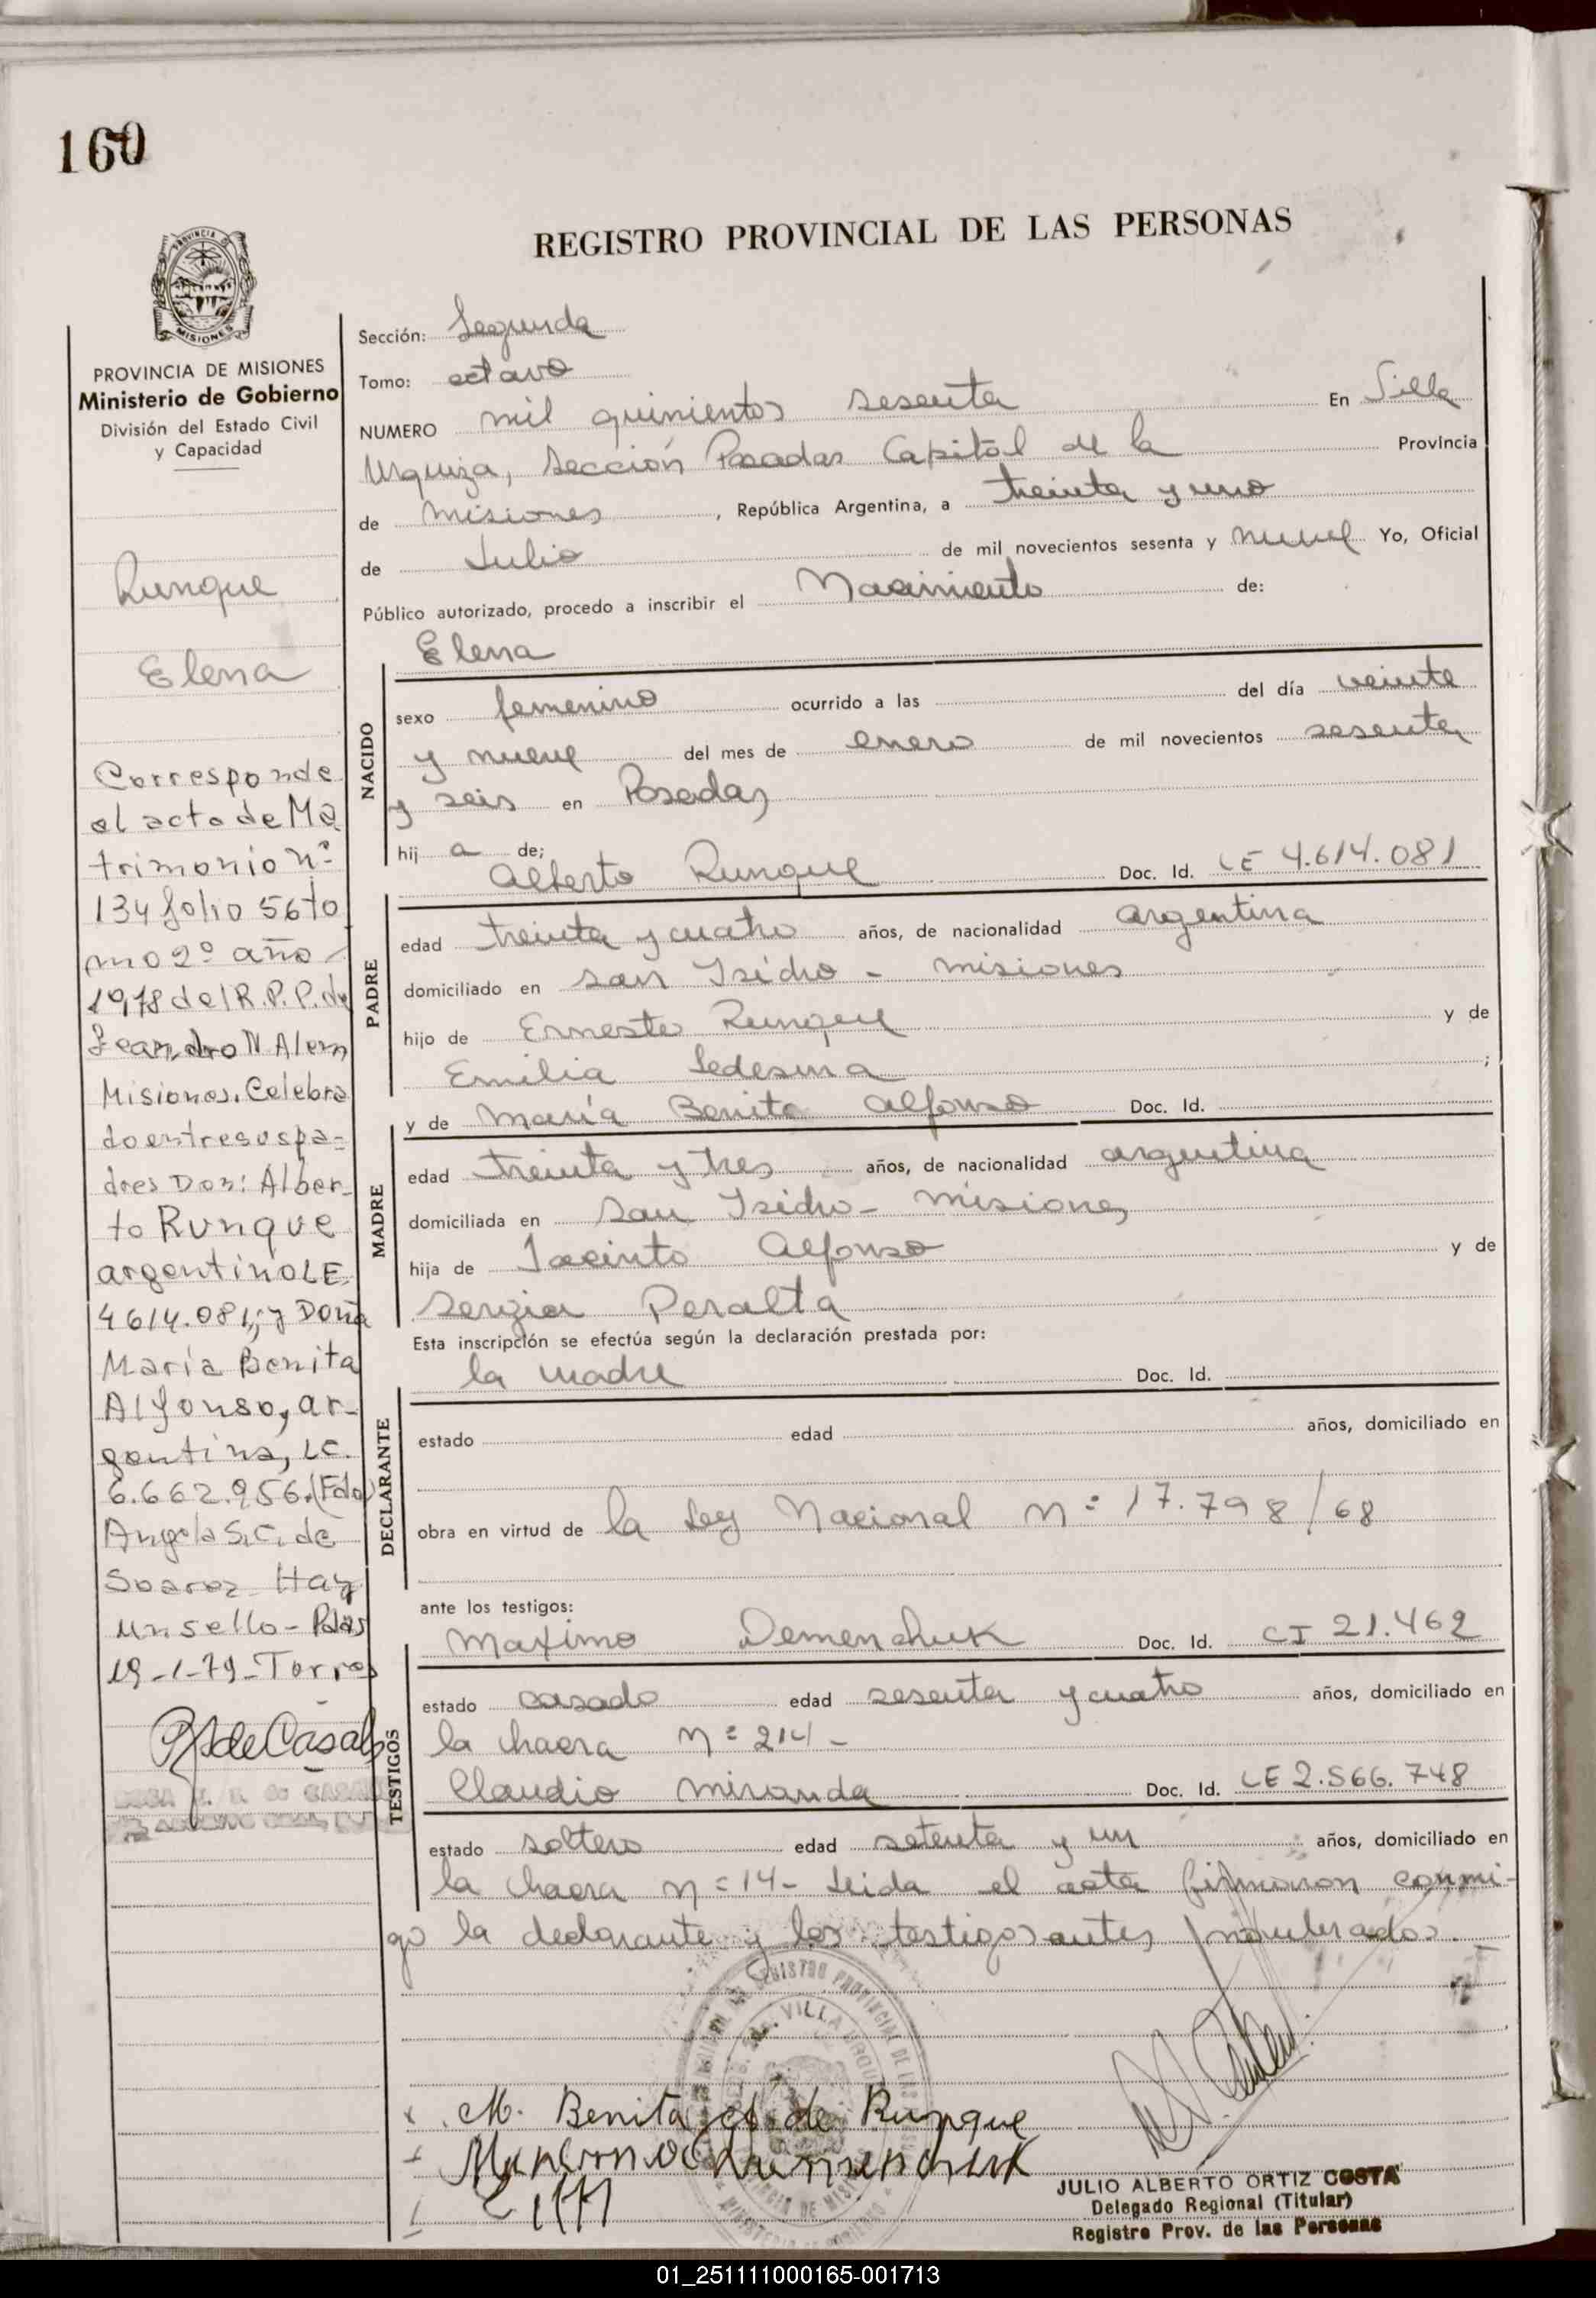 160
REGISTRO PROVINCIAL DE LAS PERSONAS
PROVINCIA DE MISIONES
MISIONES
PROVINCIA DE MISIONES
Ministerio de Gobierno
División del Estado Civil
y Capacidad
Runque
Elena
Corresponde
al acta de Ma
trimonio Nº
134 folio 56 to
mo 2º año
1978 del R.P.P. de
Leandro N Alem
Misiones. Celebra
do entre sus pa-
dres Don: Alber-
to Runque
argentino LE.
4614.081; y Doña
María Benita
Alfonso, ar-
gentina, LC.
6.662.956. (Fdo)
Angela S.C. de
Soarez Hay
un sello - Pdas
19-1-79-Torres
Sección: Segunda
Tomo: octavo
NUMERO mil quinientos sesenta En Villa
Urquiza, Sección Posadas Capital de la Provincia
de Misiones, República Argentina, a treinta y uno
de Julio de mil novecientos sesenta y nueve Yo, Oficial
Público autorizado, procedo a inscribir el Nacimiento de:
Elena
NACIDO
sexo femenino ocurrido a las del día veinte
y nueve del mes de enero de mil novecientos sesenta
y seis en Posadas
hij a de;
Alberto Runque Doc. Id. LE 4.614.081
PADRE
edad treinta y cuatro años, de nacionalidad argentina
domiciliado en San Isidro - Misiones
hijo de Ernesto Runque y de
Emilia Ledesma ;
y de María Benita Alfonso Doc. Id.
MADRE
edad treinta y tres años, de nacionalidad argentina
domiciliada en San Isidro - Misiones
hija de Jacinto Alfonso y de
Sergia Peralta
Esta inscripción se efectúa según la declaración prestada por:
la madre Doc. Id.
DECLARANTE
estado edad años, domiciliado en
obra en virtud de la Ley Nacional Nº 17.798/68
ante los testigos:
Maximo Demenchuk Doc. Id. CI 21.462
TESTIGOS
estado casado edad sesenta y cuatro años, domiciliado en
la chacra Nº 214 -
Claudio Miranda Doc. Id. LE 2.566.748
estado soltero edad setenta y un años, domiciliado en
la chacra Nº 14 - Leida el acta firmaron conmi-
go la declarante y los testigos antes nombrados.
M. Benita A. de Runque
JULIO ALBERTO ORTIZ COSTA
Delegado Regional (Titular)
Registro Prov. de las Personas
01_251111000165-001713